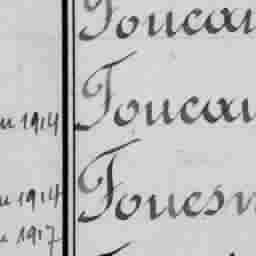 Foucau
1914 Foucau
1914 Fouesn
1917